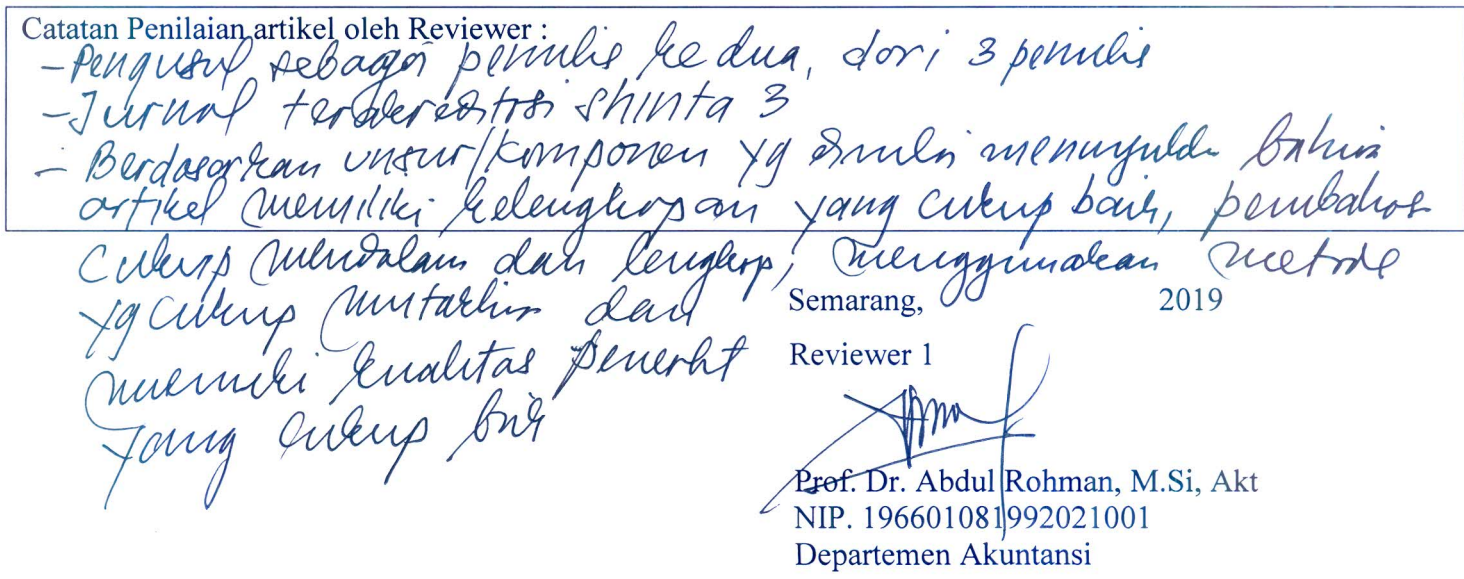 Catatan Penilaian artikel oleh Reviewer :
- Pengusul sebagai penulis kedua, dari 3 penulis
- Jurnal terakreditasi Shinta 3
- Berdasarkan unsur/komponen yg dinilai menunjukkn bahwa
artikel memiliki kelengkapan yang cukup baik, pembahas
cukup mendalam dan lengkap, menggunakan metode
yg cukup mutakhir dan
memiliki kualitas penerbit
yang cukup baik
Semarang, 2019
Reviewer 1
Prof. Dr. Abdul Rohman, M.Si, Akt
NIP. 196601081992021001
Departemen Akuntansi